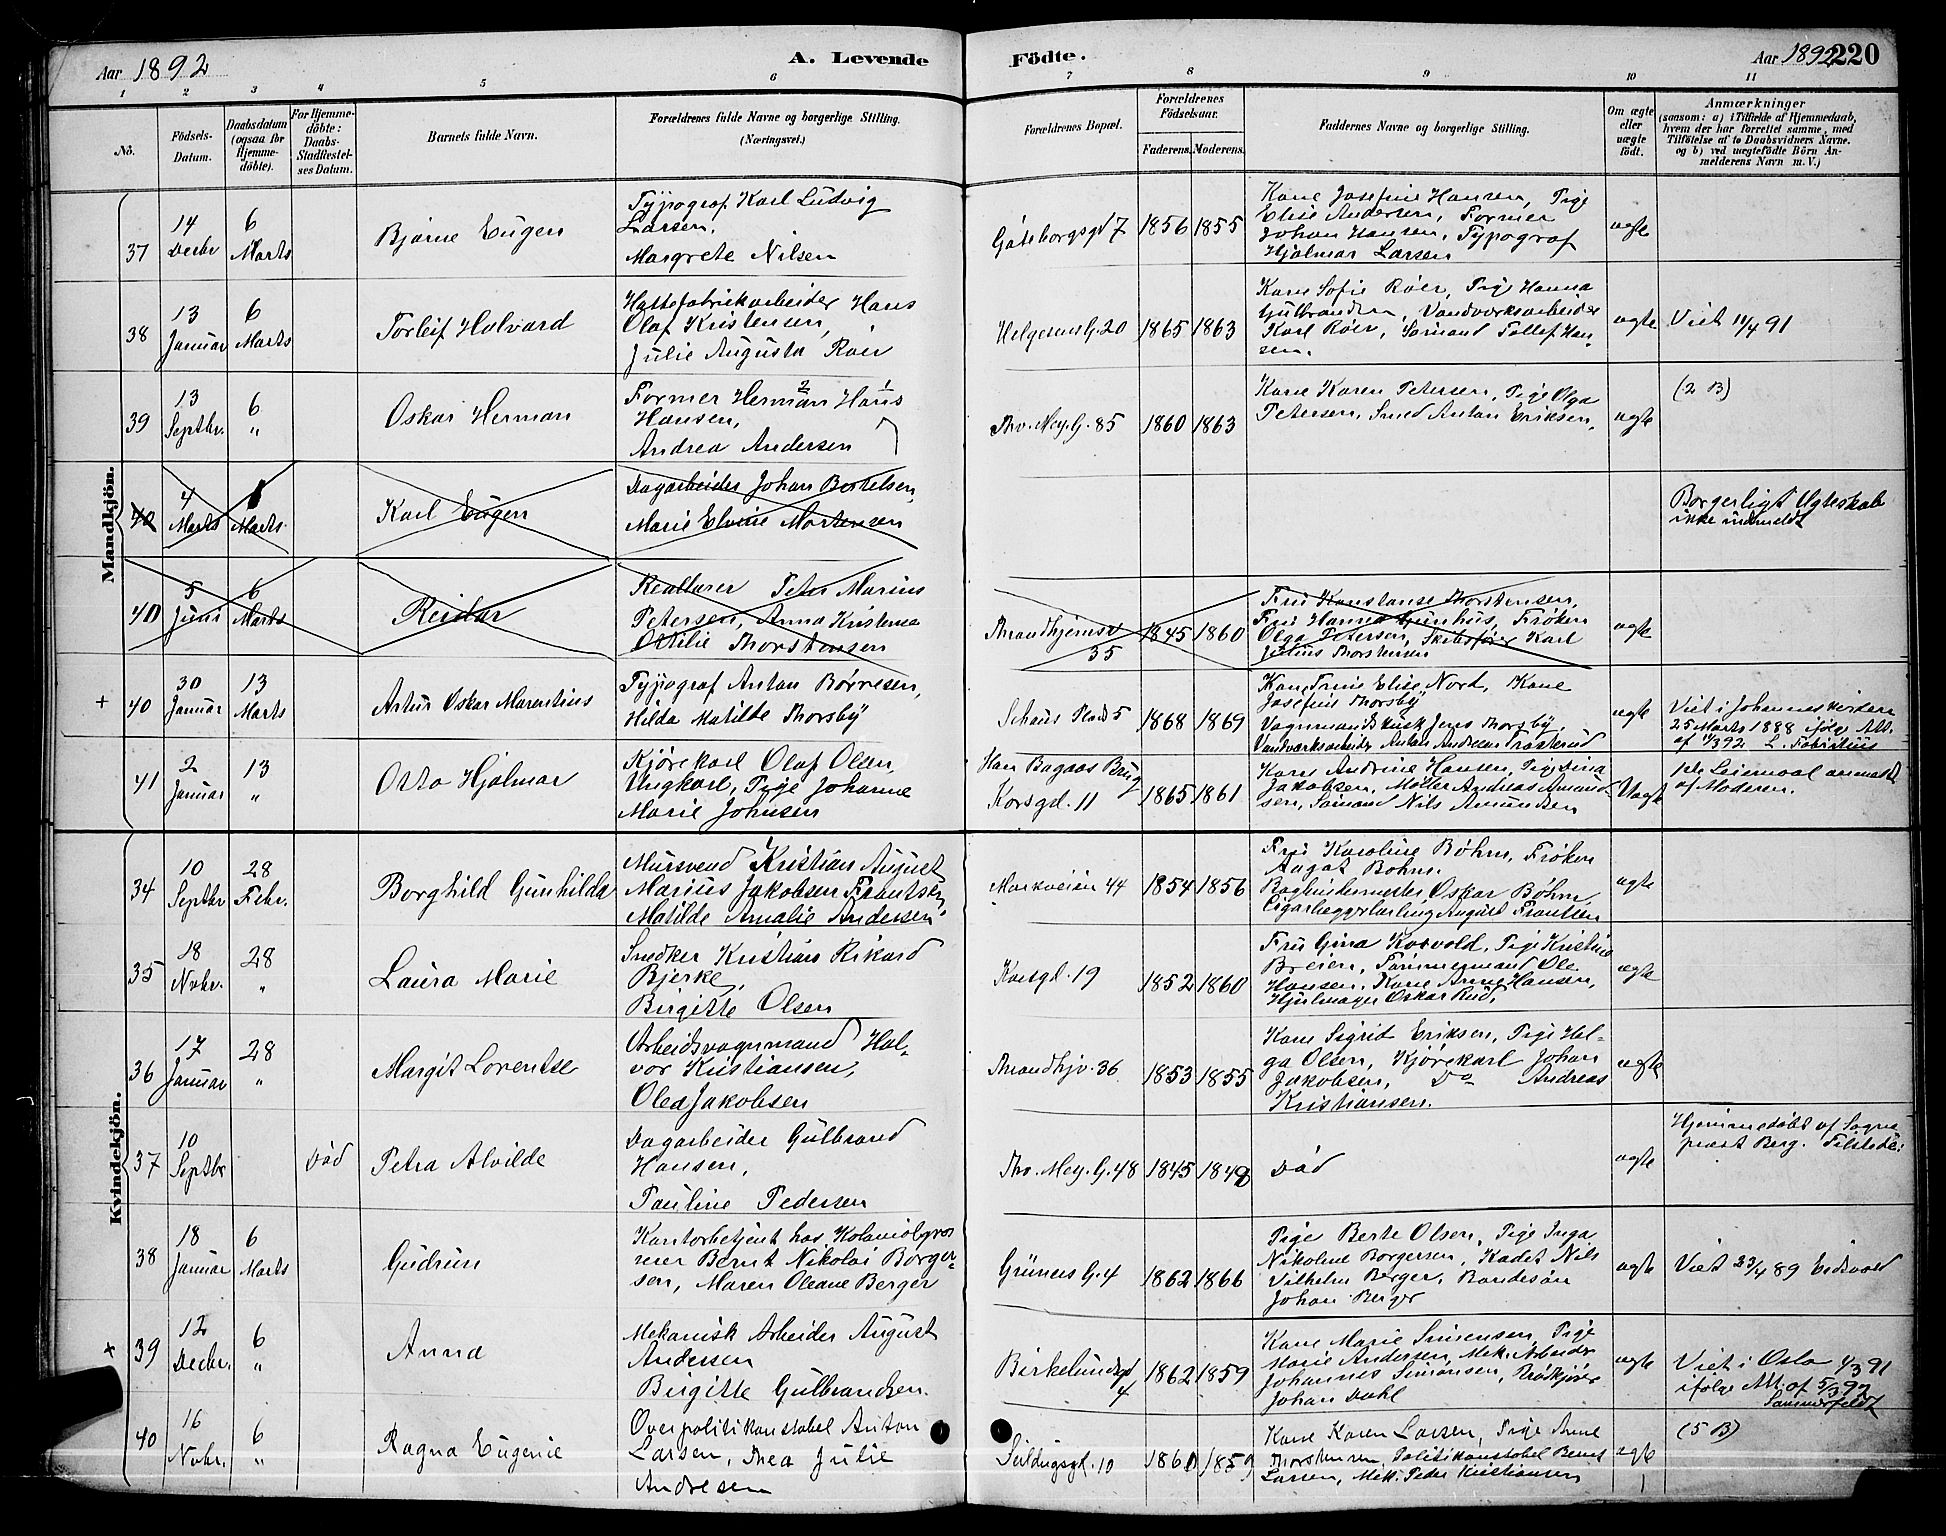 Aar 1892
A. Levende
Födte.
Aar 1892
220
1 2 3 4 5 6 7 8 9 10 11
No.
Födsels-
Datum.
Daabsdatum
(ogsaa for
Hjemme-
döbte).
For Hjemme-
döbte:
Daabs-
Stadfæstel-
ses Datum.
Barnets fulde Navn.
Forældrenes fulde Navne og borgerlige Stilling.
(Næringsvei.)
Forældrenes Bopæl.
Forældrenes
Födselsaar.
Faderens. Moderens.
Faddernes Navne og borgerlige Stilling.
Om ægte
eller
uægte
födt.
Anmærkninger
(saasom: a) i Tilfælde af Hjemmedaab,
hvem der har forrettet samme, med
Tilföielse af to Daabsvidners Navne,
og b) ved uægtefödte Börn An-
melderens Navn m. V.)
Mandkjön.
37
14
Decbr
6
Marts
Bjarne Eugen
Typograf Karl Ludvig
Larsen,
Margrete Nilsen
Göteborgsgd 7
1856 1855
Kone Josefine Hansen, Pige
Elise Andersen, Former
Johan Hansen, Typograf
Hjalmar Larsen
ægte
38
13
Januar
6
Marts
Torleif Halvard
Hattefabrikarbeider Hans
Olaf Kristensen,
Julie Augusta Röer
Helgesens G. 20
1865 1863
Kone Sofie Röer, Pige Hanna
Gulbrandsen, Vandværksarbeider
Karl Röer, Sömand Tollef Han-
sen.
ægte
Viet 11/4 91
39
13
Septbr.
6
"
Oskar Herman
Former Herman Hans
2 1
Hansen,
Andrea Andersen
Thv. Mey. G. 85
1860 1863
Kone Karen Petersen, Pige Olga
Petersen, Smed Anton Eriksen,
ægte
(2 B)
40
4
Marts
Marts
Karl Eugen
Dagarbeider Johan Bertelsen,
Marie Elvine Mortensen
Borgerligt Ægteskab
ikke indmeldt
40
5
Juni
6
Marts
Reidar
Peter Marius
Petersen, Anna Kristena
Ottilie Thorstensen
Throndhjemsv
35
1845 1860
Fru Konstanse Thorstensen,
Fru Hanna Gunhus, Fröken
Olga Petersen, Skibsförer Karl
Julius Thorstensen
ægte
+ 40
30
Januar
13
Marts
Artur Oskar Marentius
Typograf Anton Börresen,
Hilda Matilde Thorsby
Schous Plads 5
1868 1869
Kone Trine Elise Nord, Kone
Josefine Thorsby
Vognmandskusk Jens Thorsby,
Vandværksarbeider Anton Andersen
ægte
Viet i Johanneskirken
25 Marts 1888 ifölge Att.
41
2
Januar
13
"
Otto Hjalmar
Kjörekarl Olaf Olsen,
Ungkarl, Pige Johanne
Marie Johnsen
Han Bagaas Brug
Korsgd. 11
1865 1861
Kone Andrine Hansen, Pige Dina
Jakobsen, Möller Andreas Amund-
sen, Sömand Nils Amundsen
Uægt
1ste Leiermaal anmeldt
af Moderen.
Kvindekjön.
34
10
Septbr
28
Febr.
Borghild Gunhilda
Mursvend Kristian August
Marius Jakobsen Frantsen,
Matilde Amalie Andersen
Markveien 44
1854 1856
Fru Karoline Böhm, Fröken
Aagot Böhm.
Bogbindermester Oskar Böhm,
Cigarlæggerlærling August Frantsen
ægte
35
18
Novbr.
28
"
Laura Marie
Snedker Kristian Rikard
Bjerke,
Birgitte Olsen
Korsgd. 19
1852 1860
Fru Gina Korvold, Pige Kristine
Breien, Tömmermand Ole
Hansen, Kone Anne Hansen,
Hjulmager Oskar Rud,
ægte
36
17
Januar
28
"
Margit Lorentse
Arbeidsvognmand Hal-
vor Kristiansen,
Olea Jakobsen
Throndhjv. 36
1853 1855
Kone Sigrid Eriksen, Pige Hel-
ga Olsen, Kjörekarl Johan
Jakobsen, Do Andreas
Kristiansen.
ægte
37
10
Septbr
Död
Petra Alvilde
Dagarbeider Gulbrand
Hansen,
Pauline Pedersen
Thv. Mey. G. 48
1845 1848
Död
ægte
Hjemmedöbt af Sogne-
præst Berg.
38
18
Januar
6
Marts
Gudrun
Kontorbetjent hos
Bernt Nikolai Borger-
sen, Maren Oleane Berger
Grüners G. 4
1862 1866
Pige Berte Olsen, Pige Inga
Nikoline Borgersen, Kadet Nils
Vilhelm Berger, Bondesön
Johan Berger
ægte
Viet 23/4 89 Eidsvold
+ 39
12
Decbr.
6
"
Anna
Mekanisk Arbeider August
Andersen
Birgitte Gulbrandsen.
Birkelundsgd
4
1862 1859
Kone Marie Simensen, Pige
Marie Andersen, Mek. Arbeider
Johannes Simonsen,
Johan Dahl
ægte
Viet i Oslo 4/3 91
ifölge Att. af 5/3 92
Sommerfeldt
40
16
Novbr.
6
"
Ragna Eugenie
Overpolitikonstabel Anton
Larsen, Thea Julie
Andresen
Seildugsgd. 10
1860 1859
Kone Karen Larsen, Pige Anne
Thorstensen, Politikonstabel Bernt
Larsen, Mek. Peder Kristiansen
ægte
(5 B)